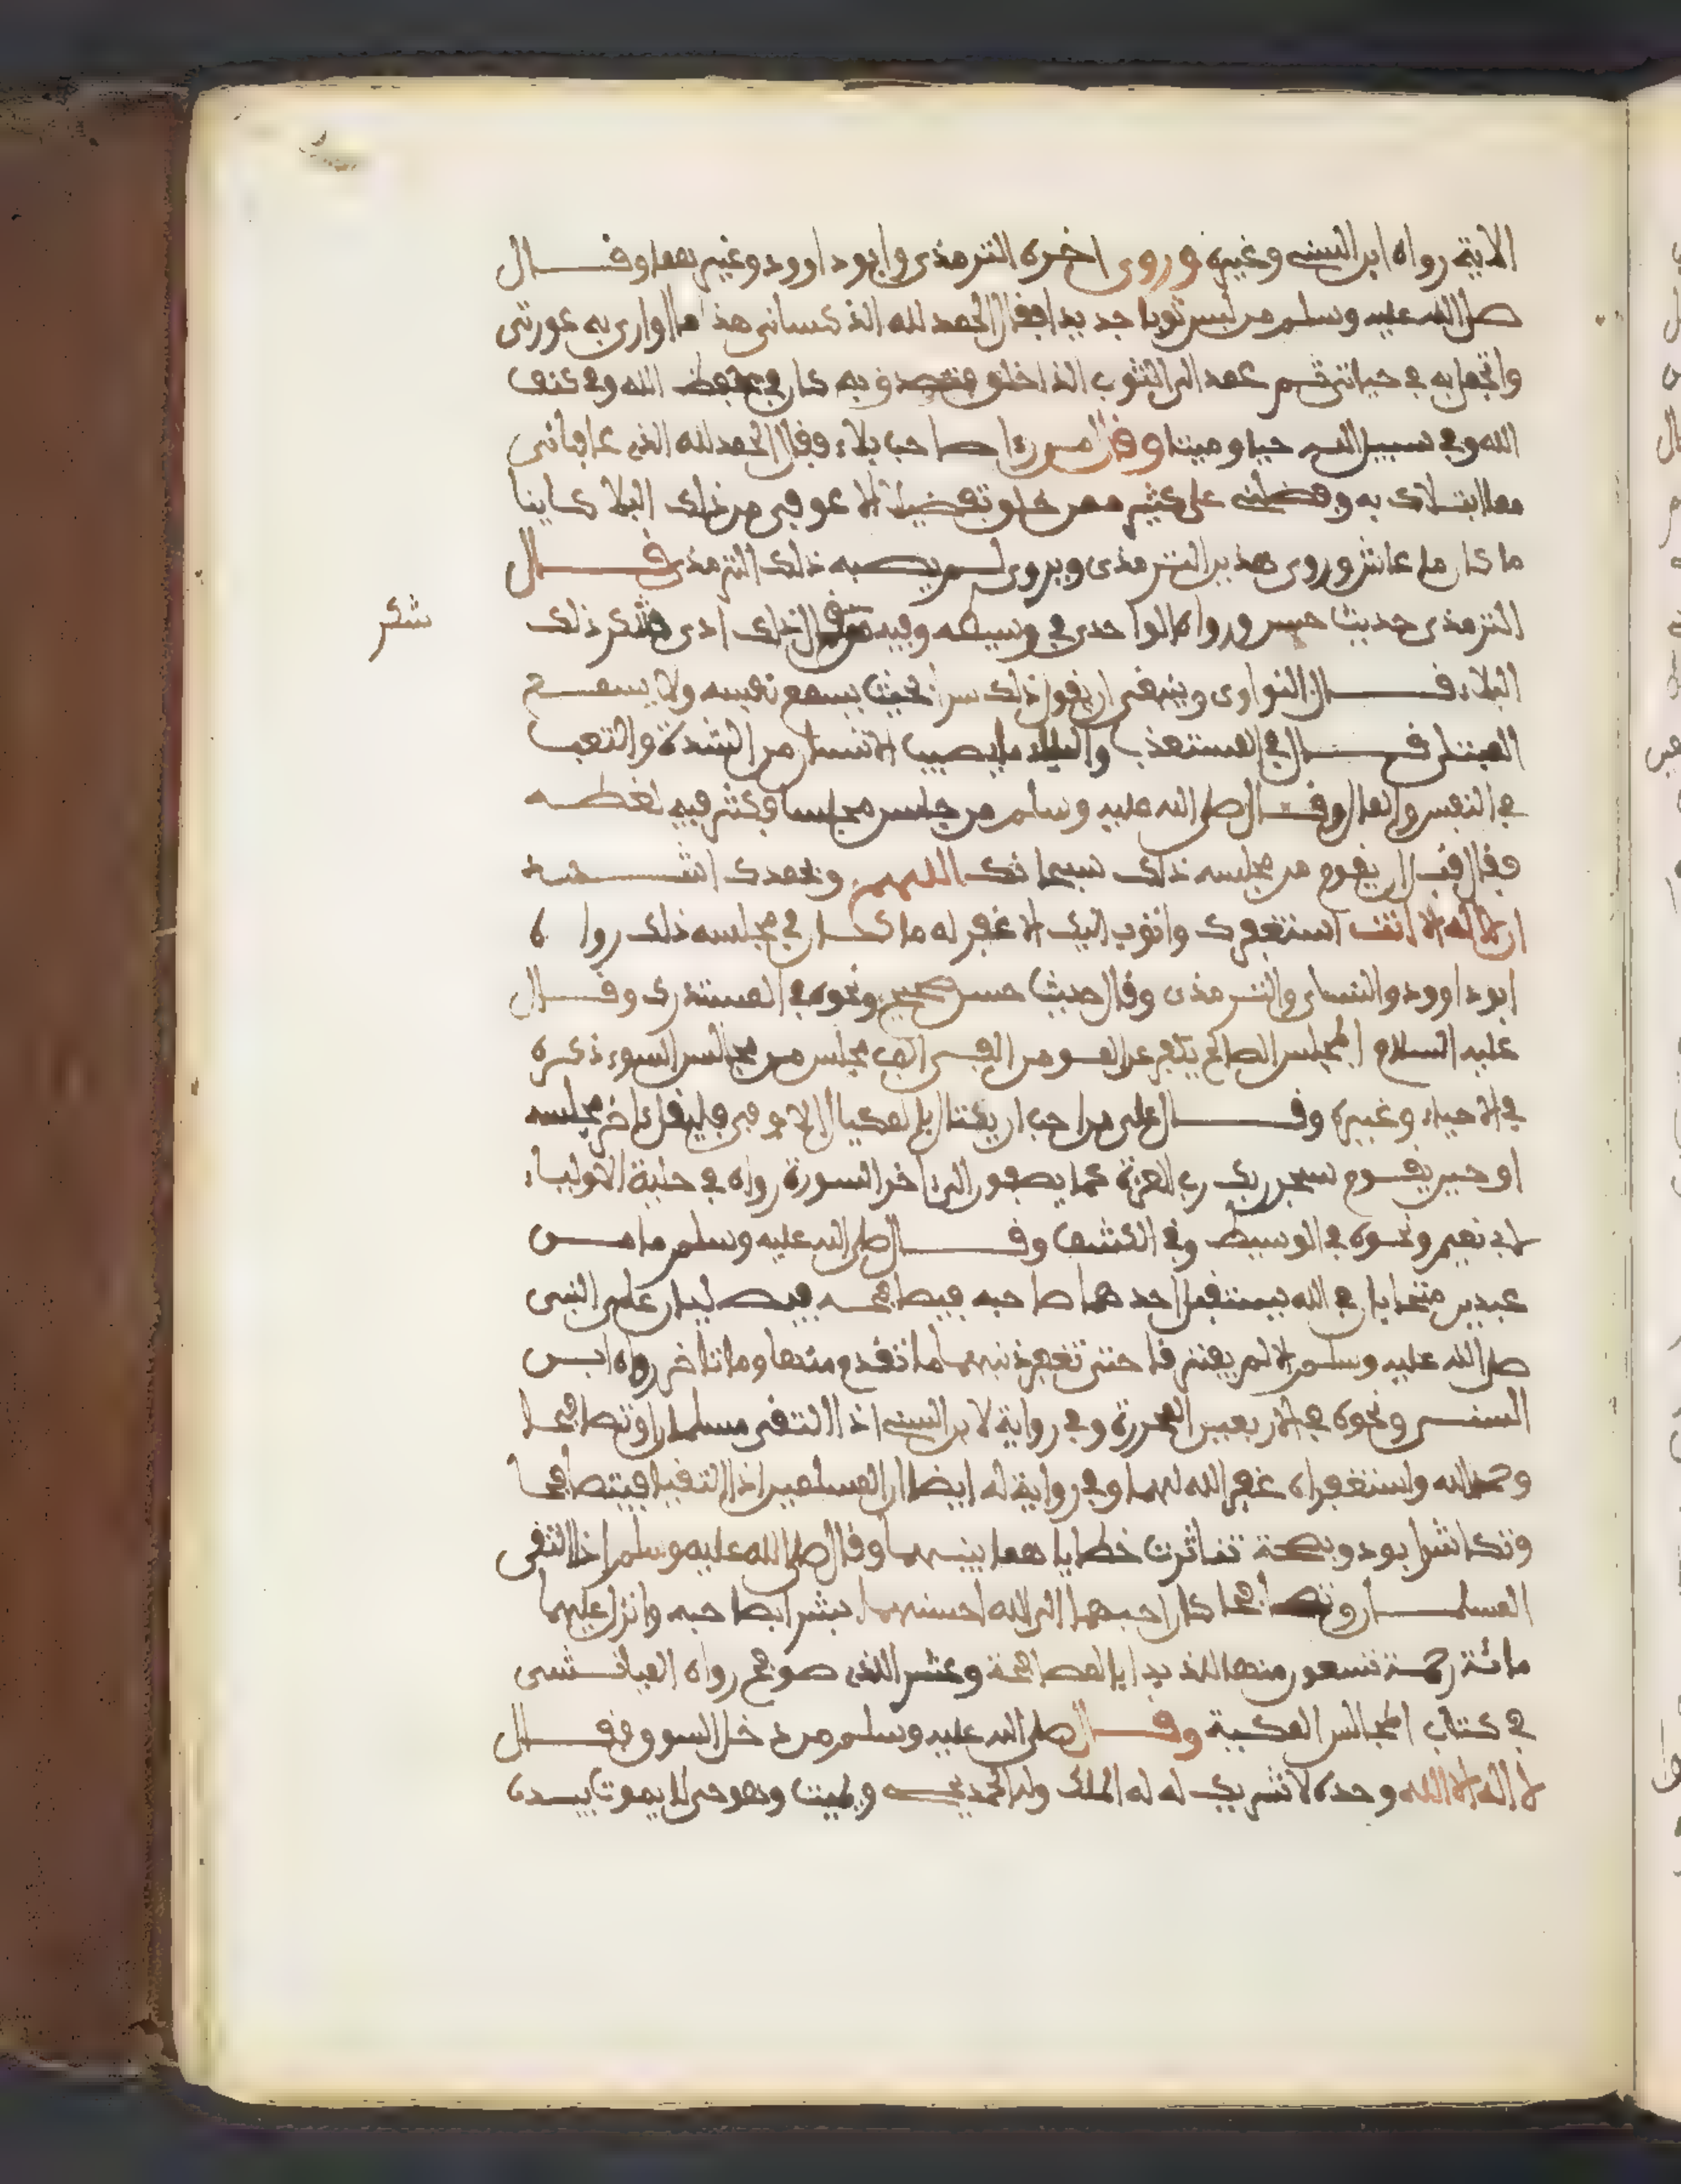 الاية رواه ابن السني وغيره وروى اخره الترمذي وابو داوود وغيرهما وقال
صلى الله عليه وسلم من لبس ثوبا جديدا فقال الحمد لله الذ كساني هذ ما اواري به عورتي
واتجمل به في حياتي ثم عمد الى الثوب الذ اخلق فتصدق به كان في حفظ الله وفي كنف
الله وفي سبيل الله حيا وميتا وقال من رءا صاحب بلاء فقال الحمد لله الذي عافاني
مما ابتلاك به وفضلني على كثير ممن خلق تفضيلا الا عوفي من ذلك البلا كاينا
ما كان ما عاش وروى هذين الترمذي ويروى لم يصبه ذلك الترمذي قال
الترمذي حديث حسن ورواه الواحدي في وسيطه وفيه من قال ذلك ادى شكر ذلك
شكر
البلاء قال النواوي وينبغي ان يقول ذلك سرا بحيث يسمع نفسه ولا يسمع
المبتلى قال في المستعذب والبلاء ما يصيب الانسان من الشدة والتعب
في النفس والمال وقال صلى الله عليه وسلم من جلس مجلسا وكثر فيه لغطه
فقال قبل ان يقوم من مجلسه ذلك سبحانك اللهم وبحمدك اشهد
ان لا اله الا انت استغفرك واتوب اليك الا غفر له ما كان في مجلسه ذلك رواه
ابو داوود والنساي والترمذي وقال حديث حسن صحيح ونحوه في المستدرك وقال
عليه السلام المجلس الصالح يكفر عن المومن الفي الف مجلس من مجالس السوء ذكره
في الاحياء وغيره وقال علي من احب ان يكتال بالمكيال الاوفى فليقل ءاخر مجلسه
او حين يقوم سبحن ربك رب العزة عما يصفون الى ءاخر السورة رواه في حلية الاولياء
لابي نعيم ونحوه في الوسيط وفي الكشف وقال صلى الله عليه وسلم ما من
عبدين متحابان في الله يستقبل احدهما صاحبه فيصافحه فيصليان على النبي
صلى الله عليه وسلم الا لم يفترقا حتى تغفر ذنبهما ما تقدم منها وما تاخر رواه ابن
السني ونحوه في الاربعين المحررة وفي رواية لابن السني اذا التقى مسلمان وتصافحا
وحمد الله واستغفراه غفر الله لهما وفي رواية له ايضا ان المسلمين اذا التقيا فيتصافحا
وتكاشرا بود ونصحة تناثرت خطاياهما بينهما وقال صلى الله عليه وسلم اذا التقى
المسلمان وتصافحا كان احبهما الى الله احسنهما بشرا بصاحبه وانزل عليهما
مائة رحمة تسعون منها للذ بدا بالمصافحة وعشر للذي صوفح رواه الميانشي
في كتاب المجالس المكية وقال صلى الله عليه وسلم من دخل السوق فقال
لا اله الا الله وحده لا شريك له له الملك وله الحمد يحي ويميت وهو حي لا يموت بيده